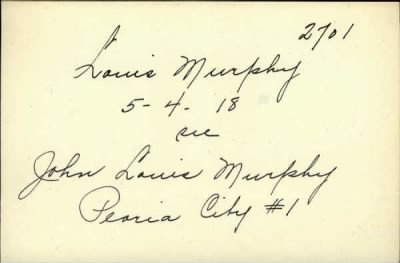 2701
Louis Murphy
5-4-18
see
John Louis Murphy
Peoria City #1